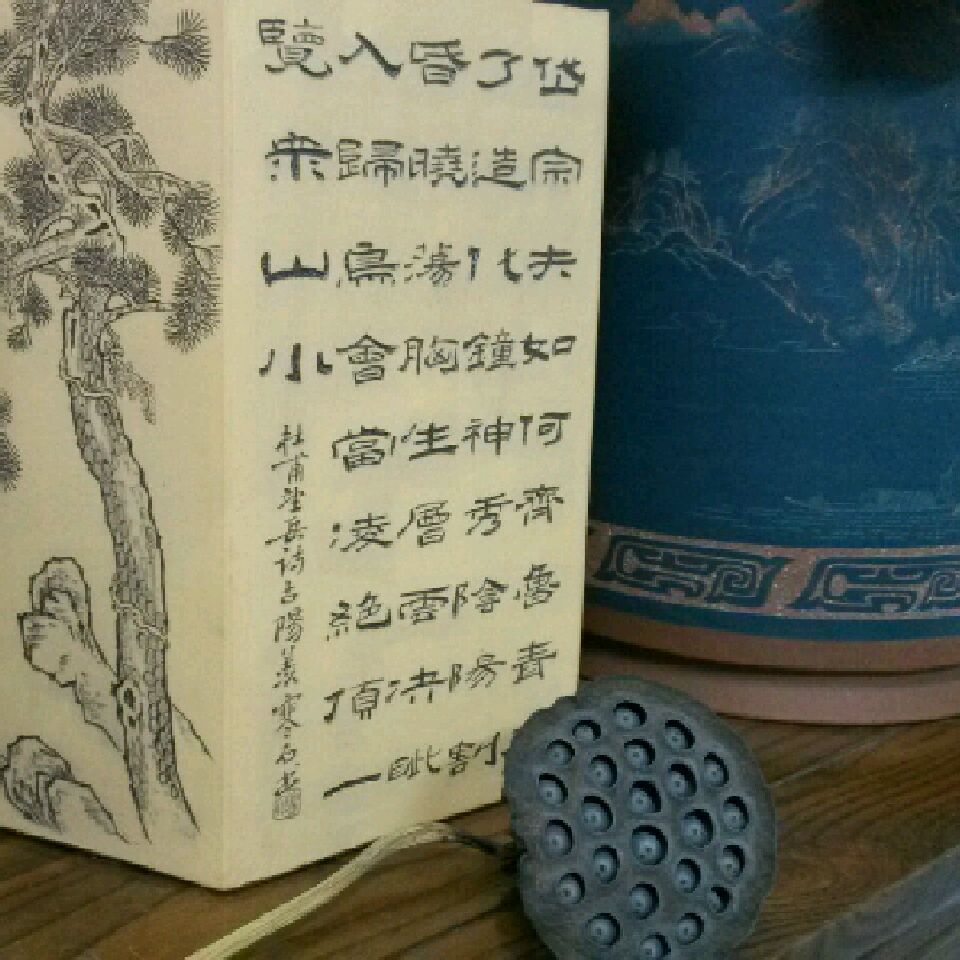 岱宗夫如何齊魯青
了造化鐘神秀陰陽割
昏曉蕩胸生層雲決眦
入歸鳥會當凌絕頂一
覽眾山小
杜甫望岳诗陽羨石